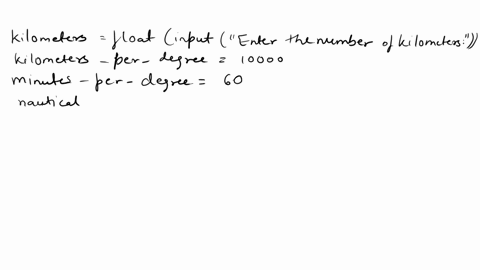 kilometers = float (input ("Enter the number of kilometers:"))
kilometers - per - degree = 10000
minutes - per - degree = 60
nautical